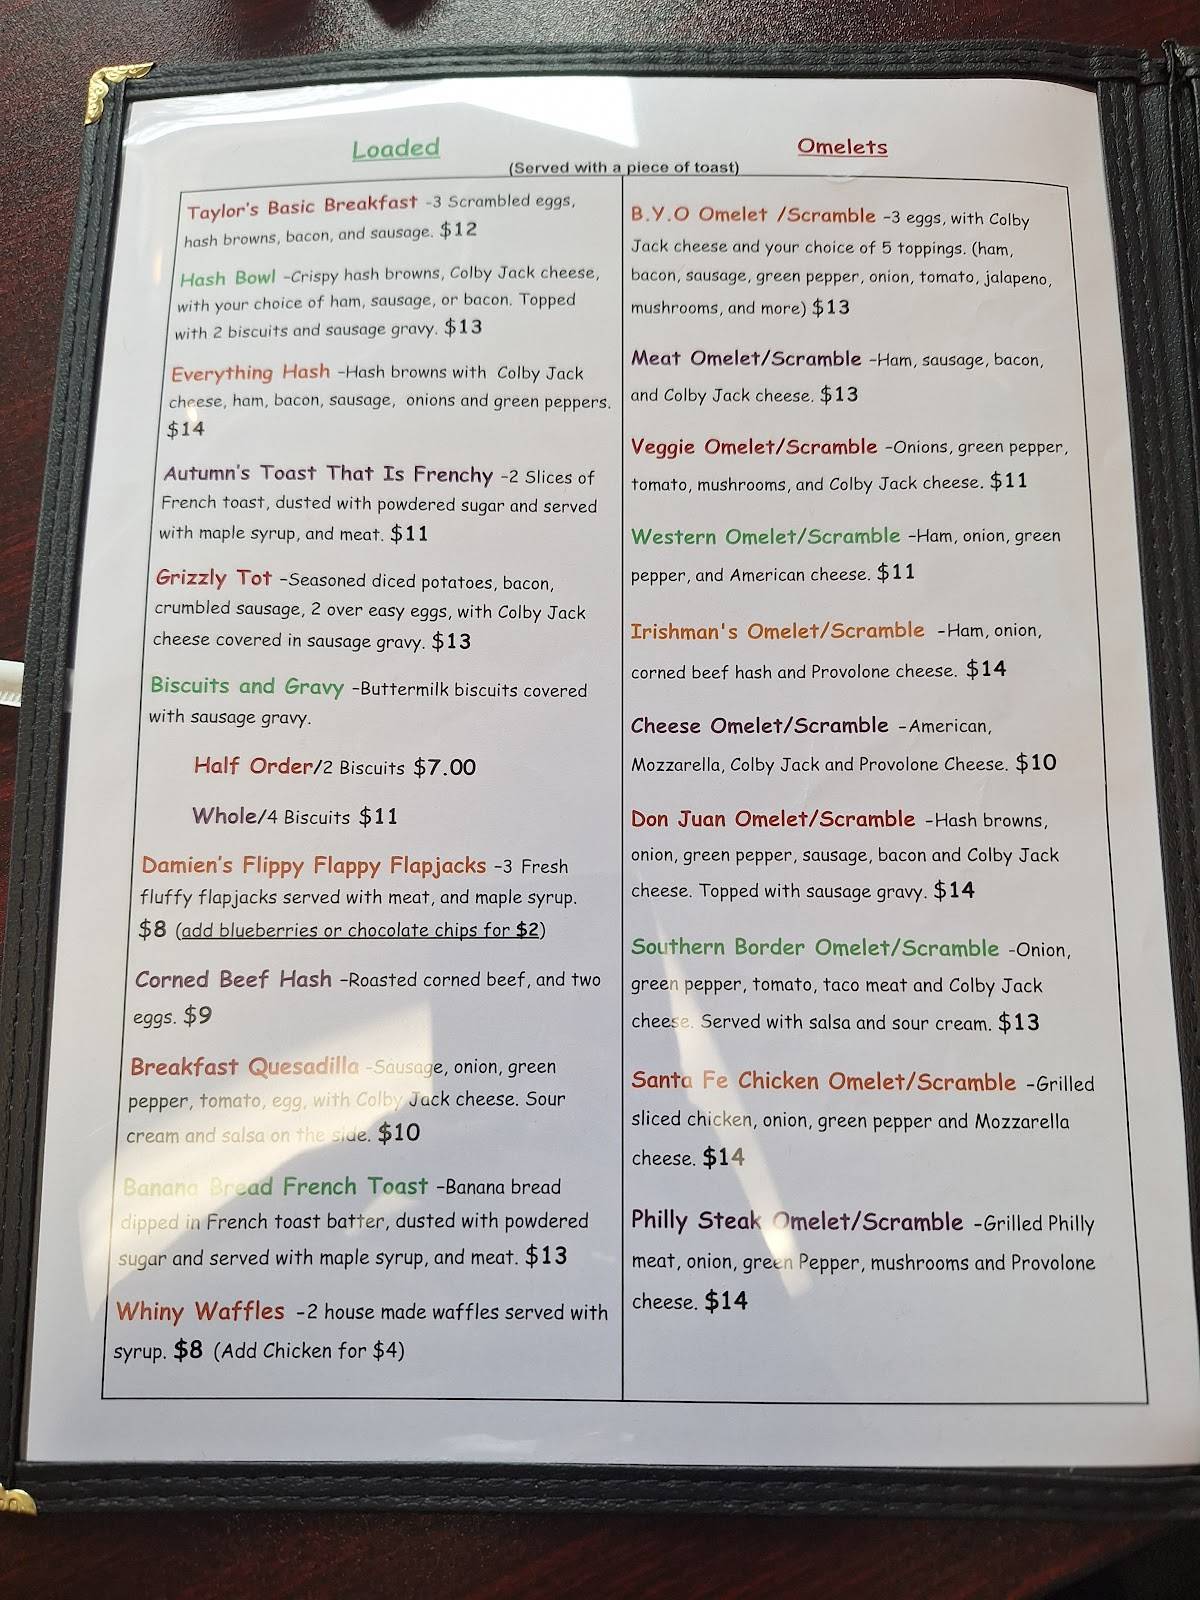 Loaded
Omelets
(Served with a piece of toast)
Taylor's Basic Breakfast -3 Scrambled eggs,
hash browns, bacon, and sausage. $12
Hash Bowl -Crispy hash browns, Colby Jack cheese,
with your choice of ham, sausage, or bacon. Topped
with 2 biscuits and sausage gravy. $13
Everything Hash -Hash browns with Colby Jack
cheese, ham, bacon, sausage, onions and green peppers.
$14
Autumn's Toast That Is Frenchy -2 Slices of
French toast, dusted with powdered sugar and served
with maple syrup, and meat. $11
Grizzly Tot -Seasoned diced potatoes, bacon,
crumbled sausage, 2 over easy eggs, with Colby Jack
cheese covered in sausage gravy. $13
Biscuits and Gravy -Buttermilk biscuits covered
with sausage gravy.
Half Order/2 Biscuits $7.00
Whole/4 Biscuits $11
Damien's Flippy Flappy Flapjacks -3 Fresh
fluffy flapjacks served with meat, and maple syrup.
$8 (add blueberries or chocolate chips for $2)
Corned Beef Hash -Roasted corned beef, and two
eggs. $9
Breakfast Quesadilla -Sausage, onion, green
pepper, tomato, egg, with Colby Jack cheese. Sour
cream and salsa on the side. $10
Banana Bread French Toast -Banana bread
dipped in French toast batter, dusted with powdered
sugar and served with maple syrup, and meat. $13
Whiny Waffles -2 house made waffles served with
syrup. $8 (Add Chicken for $4)
B.Y.O Omelet /Scramble -3 eggs, with Colby
Jack cheese and your choice of 5 toppings. (ham,
bacon, sausage, green pepper, onion, tomato, jalapeno,
mushrooms, and more) $13
Meat Omelet/Scramble -Ham, sausage, bacon,
and Colby Jack cheese. $13
Veggie Omelet/Scramble -Onions, green pepper,
tomato, mushrooms, and Colby Jack cheese. $11
Western Omelet/Scramble -Ham, onion, green
pepper, and American cheese. $11
Irishman's Omelet/Scramble -Ham, onion,
corned beef hash and Provolone cheese. $14
Cheese Omelet/Scramble -American,
Mozzarella, Colby Jack and Provolone Cheese. $10
Don Juan Omelet/Scramble -Hash browns,
onion, green pepper, sausage, bacon and Colby Jack
cheese. Topped with sausage gravy. $14
Southern Border Omelet/Scramble -Onion,
green pepper, tomato, taco meat and Colby Jack
cheese. Served with salsa and sour cream. $13
Santa Fe Chicken Omelet/Scramble -Grilled
sliced chicken, onion, green pepper and Mozzarella
cheese. $14
Philly Steak Omelet/Scramble -Grilled Philly
meat, onion, green Pepper, mushrooms and Provolone
cheese. $14